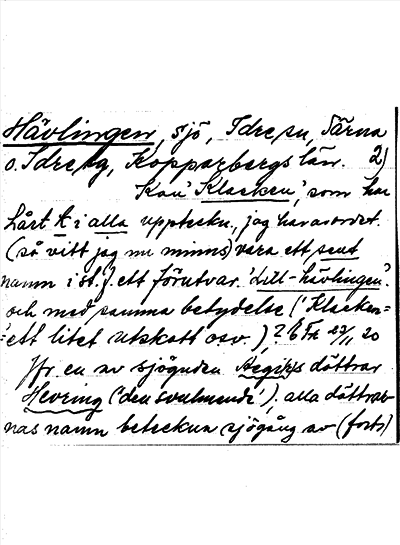 Hävlingen, sjö, Idre sn, Särna
o. Idre tg, Kopparbergs län. 2)
Kan 'Klacken', som har
hårt k i alla uppteckn., jag har avordet.
(så vitt jag nu minns) vara ett sent
namn i st. f. ett förutvar. 'Lill-hävlingen'.
och med samma betydelse ('Klacken=
=ett litet utskott osv.)? G Fr 29/11 20
Jfr en av sjöguden Aegirs döttrar
Hevring ('den svulmande'). alla döttrar-
nas namn beteckna sjögång av (forts)